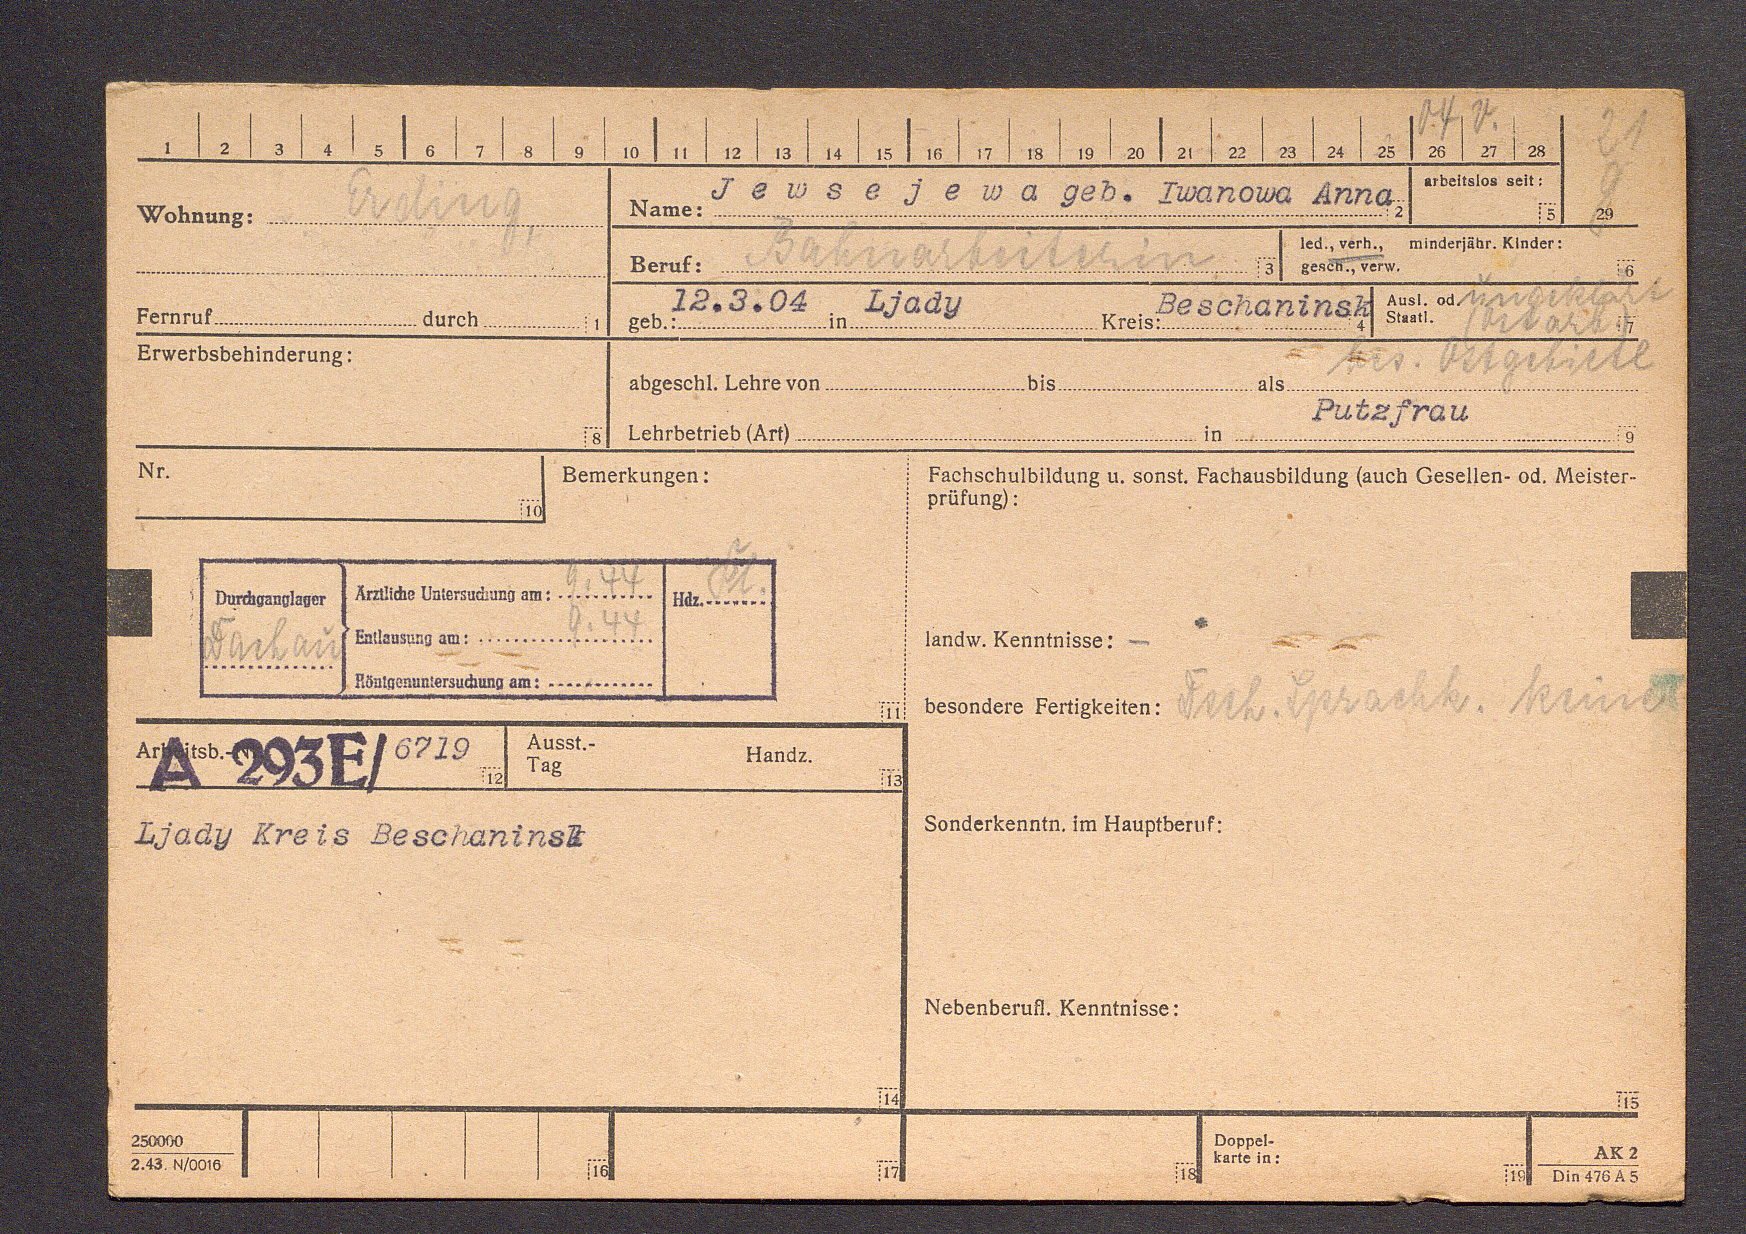 04 V. 21
1 2 3 4 5 6 7 8 9 10 11 12 13 14 15 16 17 18 19 20 21 22 23 24 25 26 27 28
Wohnung: Erding,
Name: Jewsejewa geb. Iwanowa Anna 2
arbeitslos seit: 5
29
Beruf: Bahnarbeiterin 3
led., verh., minderjähr. Kinder:
gesch., verw. 6
Fernruf durch 1
geb.: 12.3.04 in Ljady Kreis: Beschaninsk 4
Ausl. od. ungeklärt
Staatl. (Ostarb.) 7
bes. Ostgebiete
Erwerbsbehinderung:
8
abgeschl. Lehre von bis als
Putzfrau
Lehrbetrieb (Art) in 9
Nr.
10
Bemerkungen:
Durchganglager
Dachau
Ärztliche Untersuchung am: 9.44
Entlausung am: 9.44
Röntgenuntersuchung am:
Hdz.
11
Fachschulbildung u. sonst. Fachausbildung (auch Gesellen- od. Meister-
prüfung):
landw. Kenntnisse: –
besondere Fertigkeiten: Dtsch. Sprachk. keine
Sonderkenntn. im Hauptberuf:
Nebenberufl. Kenntnisse:
15
Arbeitsb.-Nr. A 293E/ 6719 12
Ausst.-
Tag
Handz.
13
Ljady Kreis Beschaninsk
14
250000
2.43. N/0016
16
17
18
Doppel-
karte in:
19
AK 2
Din 476 A 5